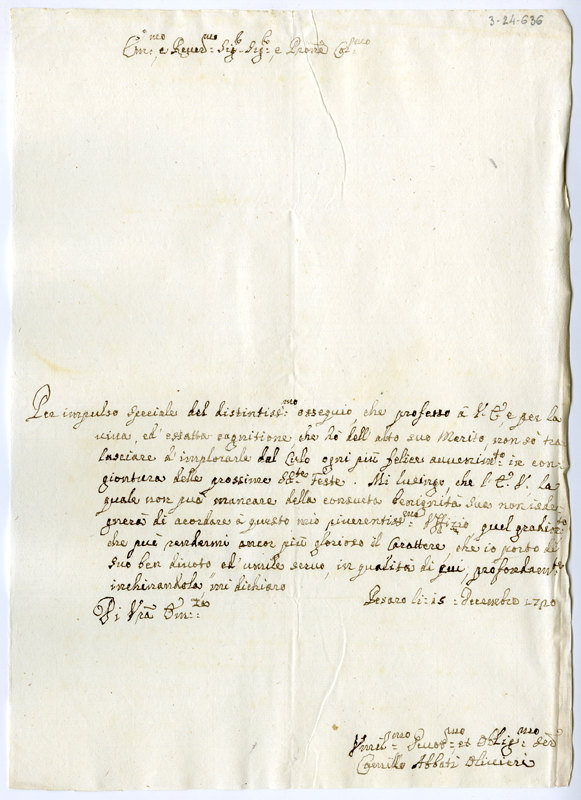 3-24-636
Em:mo, e Reuer:mo Sig:r Sig:r, e Prone Col:mo
Per impulso speciale del distintiss:mo ossequio che professo à V: E:, e per la
uiua, ed' esatta cognitione che hò dell' alto suo Merito, non sò tra
lasciare d'implorarle dal Cielo ogni più felice auuenim:to in con
giontura delle prossime S:te Feste. Mi lusingo, che l' E: V: la
quale non può mancare della consueta benignità sua non isde
gnerà di acordare à questo mio riuerentiss:mo Vffizio, quel gradim:to
che può rendermi ancor più glorioso il Carattere, che io porto di
suo ben diuoto ed' umile seruo, in qualità di cui profondam:te
inchinandola, mi dichiaro
Pesaro li: 15: Decembre 1710
Di Vrã Em:za
Vmil:mo Deuot:mo et Oblig:mo Ser:
Camillo Abbati Oliuieri